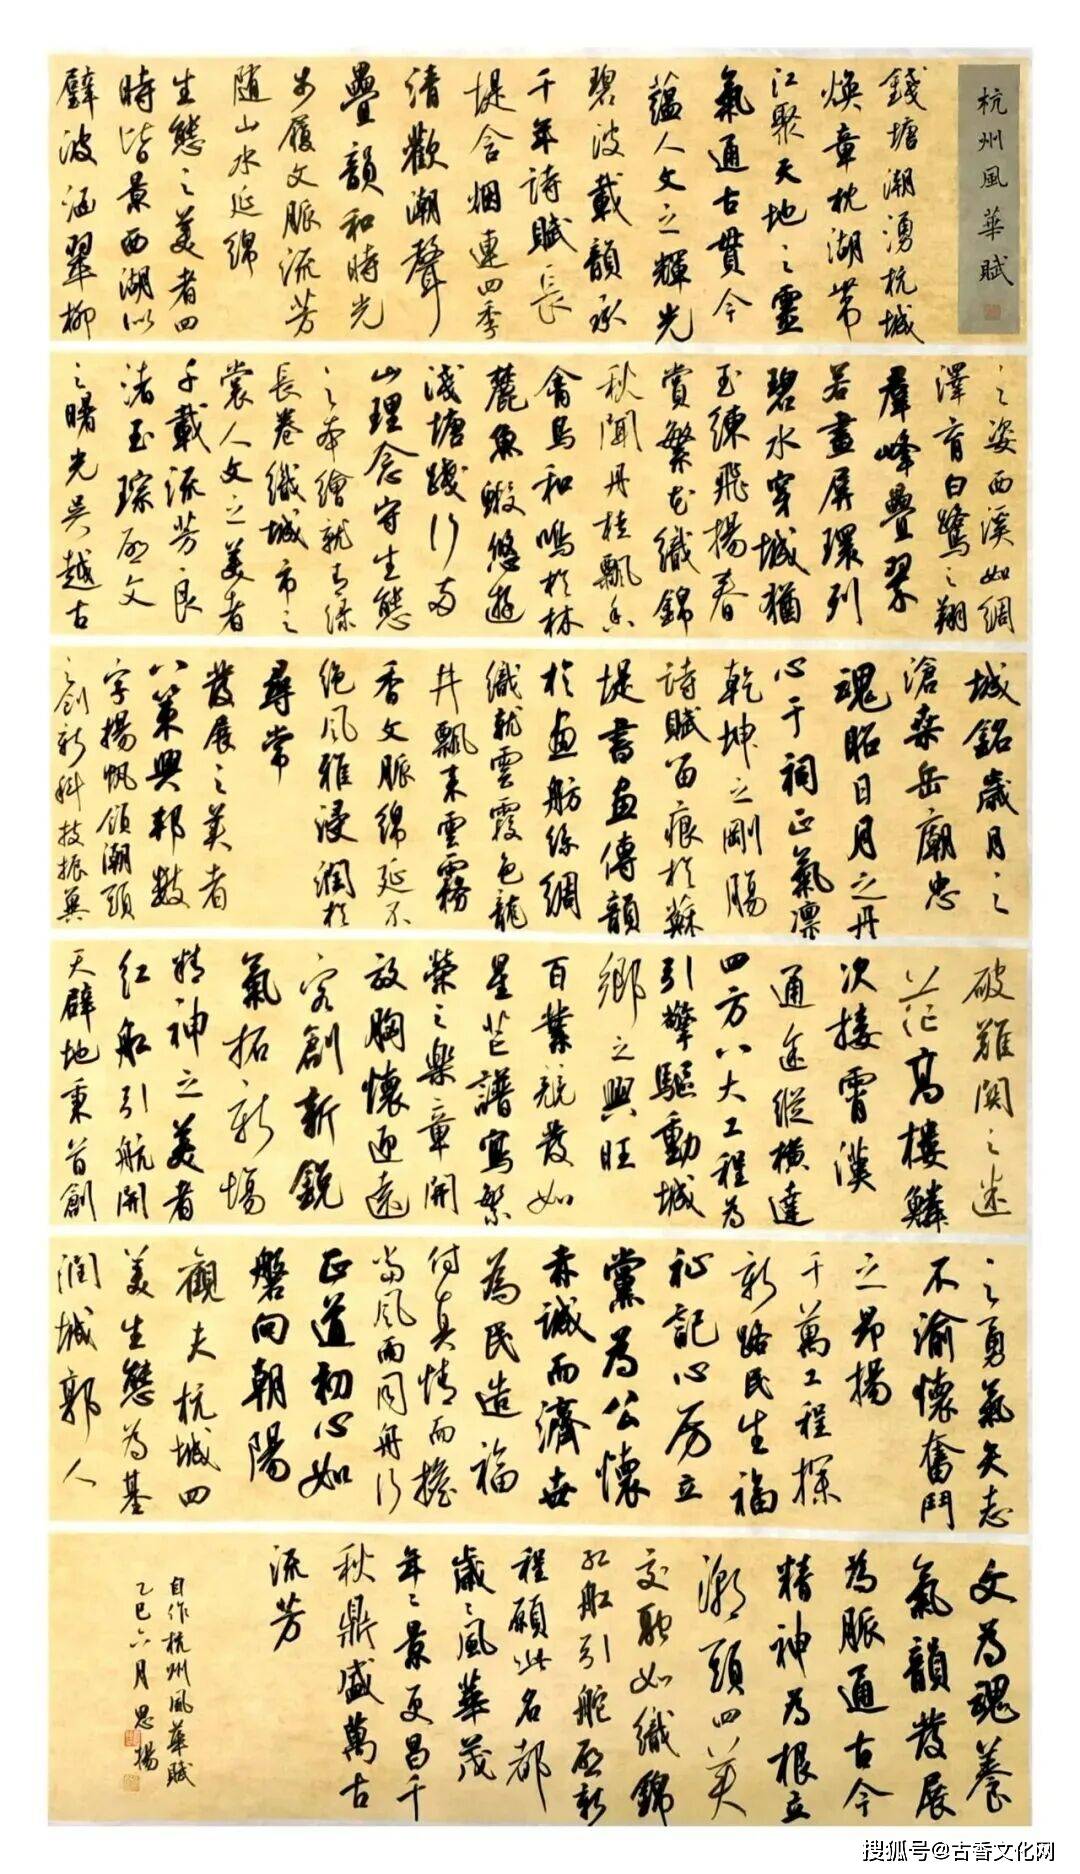 杭州風華賦
錢塘潮湧杭城
煥章枕湖帶
江聚天地之靈
氣通古貫今
蘊人文之輝光
碧波載韻承
千年詩賦長
堤含烟連四季
清歡潮聲
疊韻和時光
步履文脈流芳
随山水延綿
生態之美者四
時皆景西湖以
碧波涵翠柳
之姿西溪如綢
澤育白鷺之翔
羣峰疊翠
若畫屏環列
碧水穿城猶
玉練飛揚春
賞繁花織錦
秋聞丹桂飄香
禽鳥和鳴於林
麓魚蝦悠遊
淺塘踐行兩
山理念守生態
之本繪就青綠
長卷織城市之
裳人文之美者
千載流芳良
渚玉琮啟文
之曙光吳越古
城銘歲月之
滄桑岳廟忠
魂昭日月之丹
心于祠正氣凛
乾坤之剛腸
詩賦留痕於蘇
堤書画傳韻
於画舫絲綢
織就雲霞色龍
井飄来雲霧
香文脈綿延不
绝風雅浸潤於
尋常
發展之美者
八策興邦數
字揚帆領潮頭
之創新科技振翼
破難関之迷
茫高樓鱗
次接霄漢
通途縱橫達
四方八大工程為
引擎驅動城
鄉之興旺
百業競發如
星芒譜寫繁
榮之樂章開
放胸懷迎遠
客創新銳
氣拓新場
精神之美者
红船引航開
天辟地秉首創
之勇氣矢志
不渝懷奮鬥
之昂揚
千萬工程探
新路民生福
祉記心房立
黨為公懷
赤誠而濟世
為民造福
付真情而擔
當風雨同舟行
正道初心如
磐向朝陽
觀夫杭城四
美生態為基
潤城郭人
文為魂養
氣韻發展
為脈通古今
精神為根立
潮頭四美
交融如織錦
红船引舵啟新
程願此名都
歲歲風華茂
年年景更昌千
秋鼎盛萬古
流芳
自作杭州風華賦
乙巳六月思揚
搜狐号@古香文化网